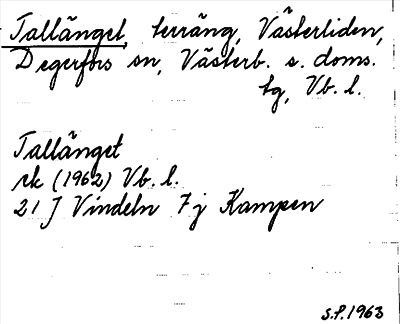 Tallänget, terräng, Västerliden,
Degerfors sn, Västerb. s. doms.
tg, Vb. l.
Tallänget
rk (1962) Vb. l.
21 J Vindeln 7 j Kampen
S.P. 1963